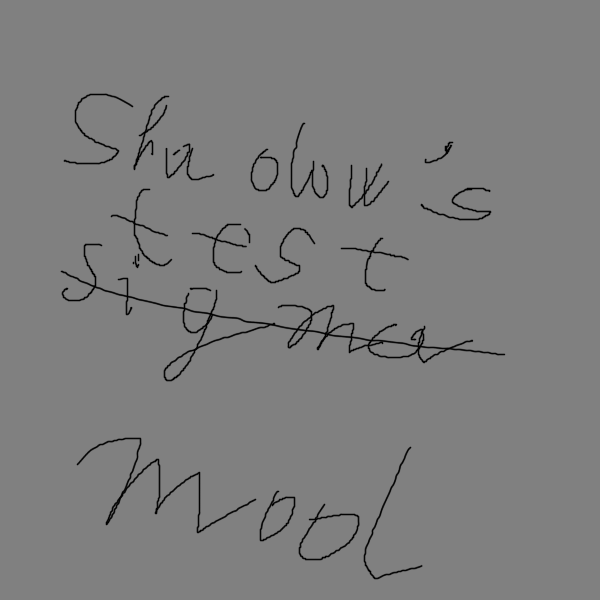 Shadow's
test
sigma
mool